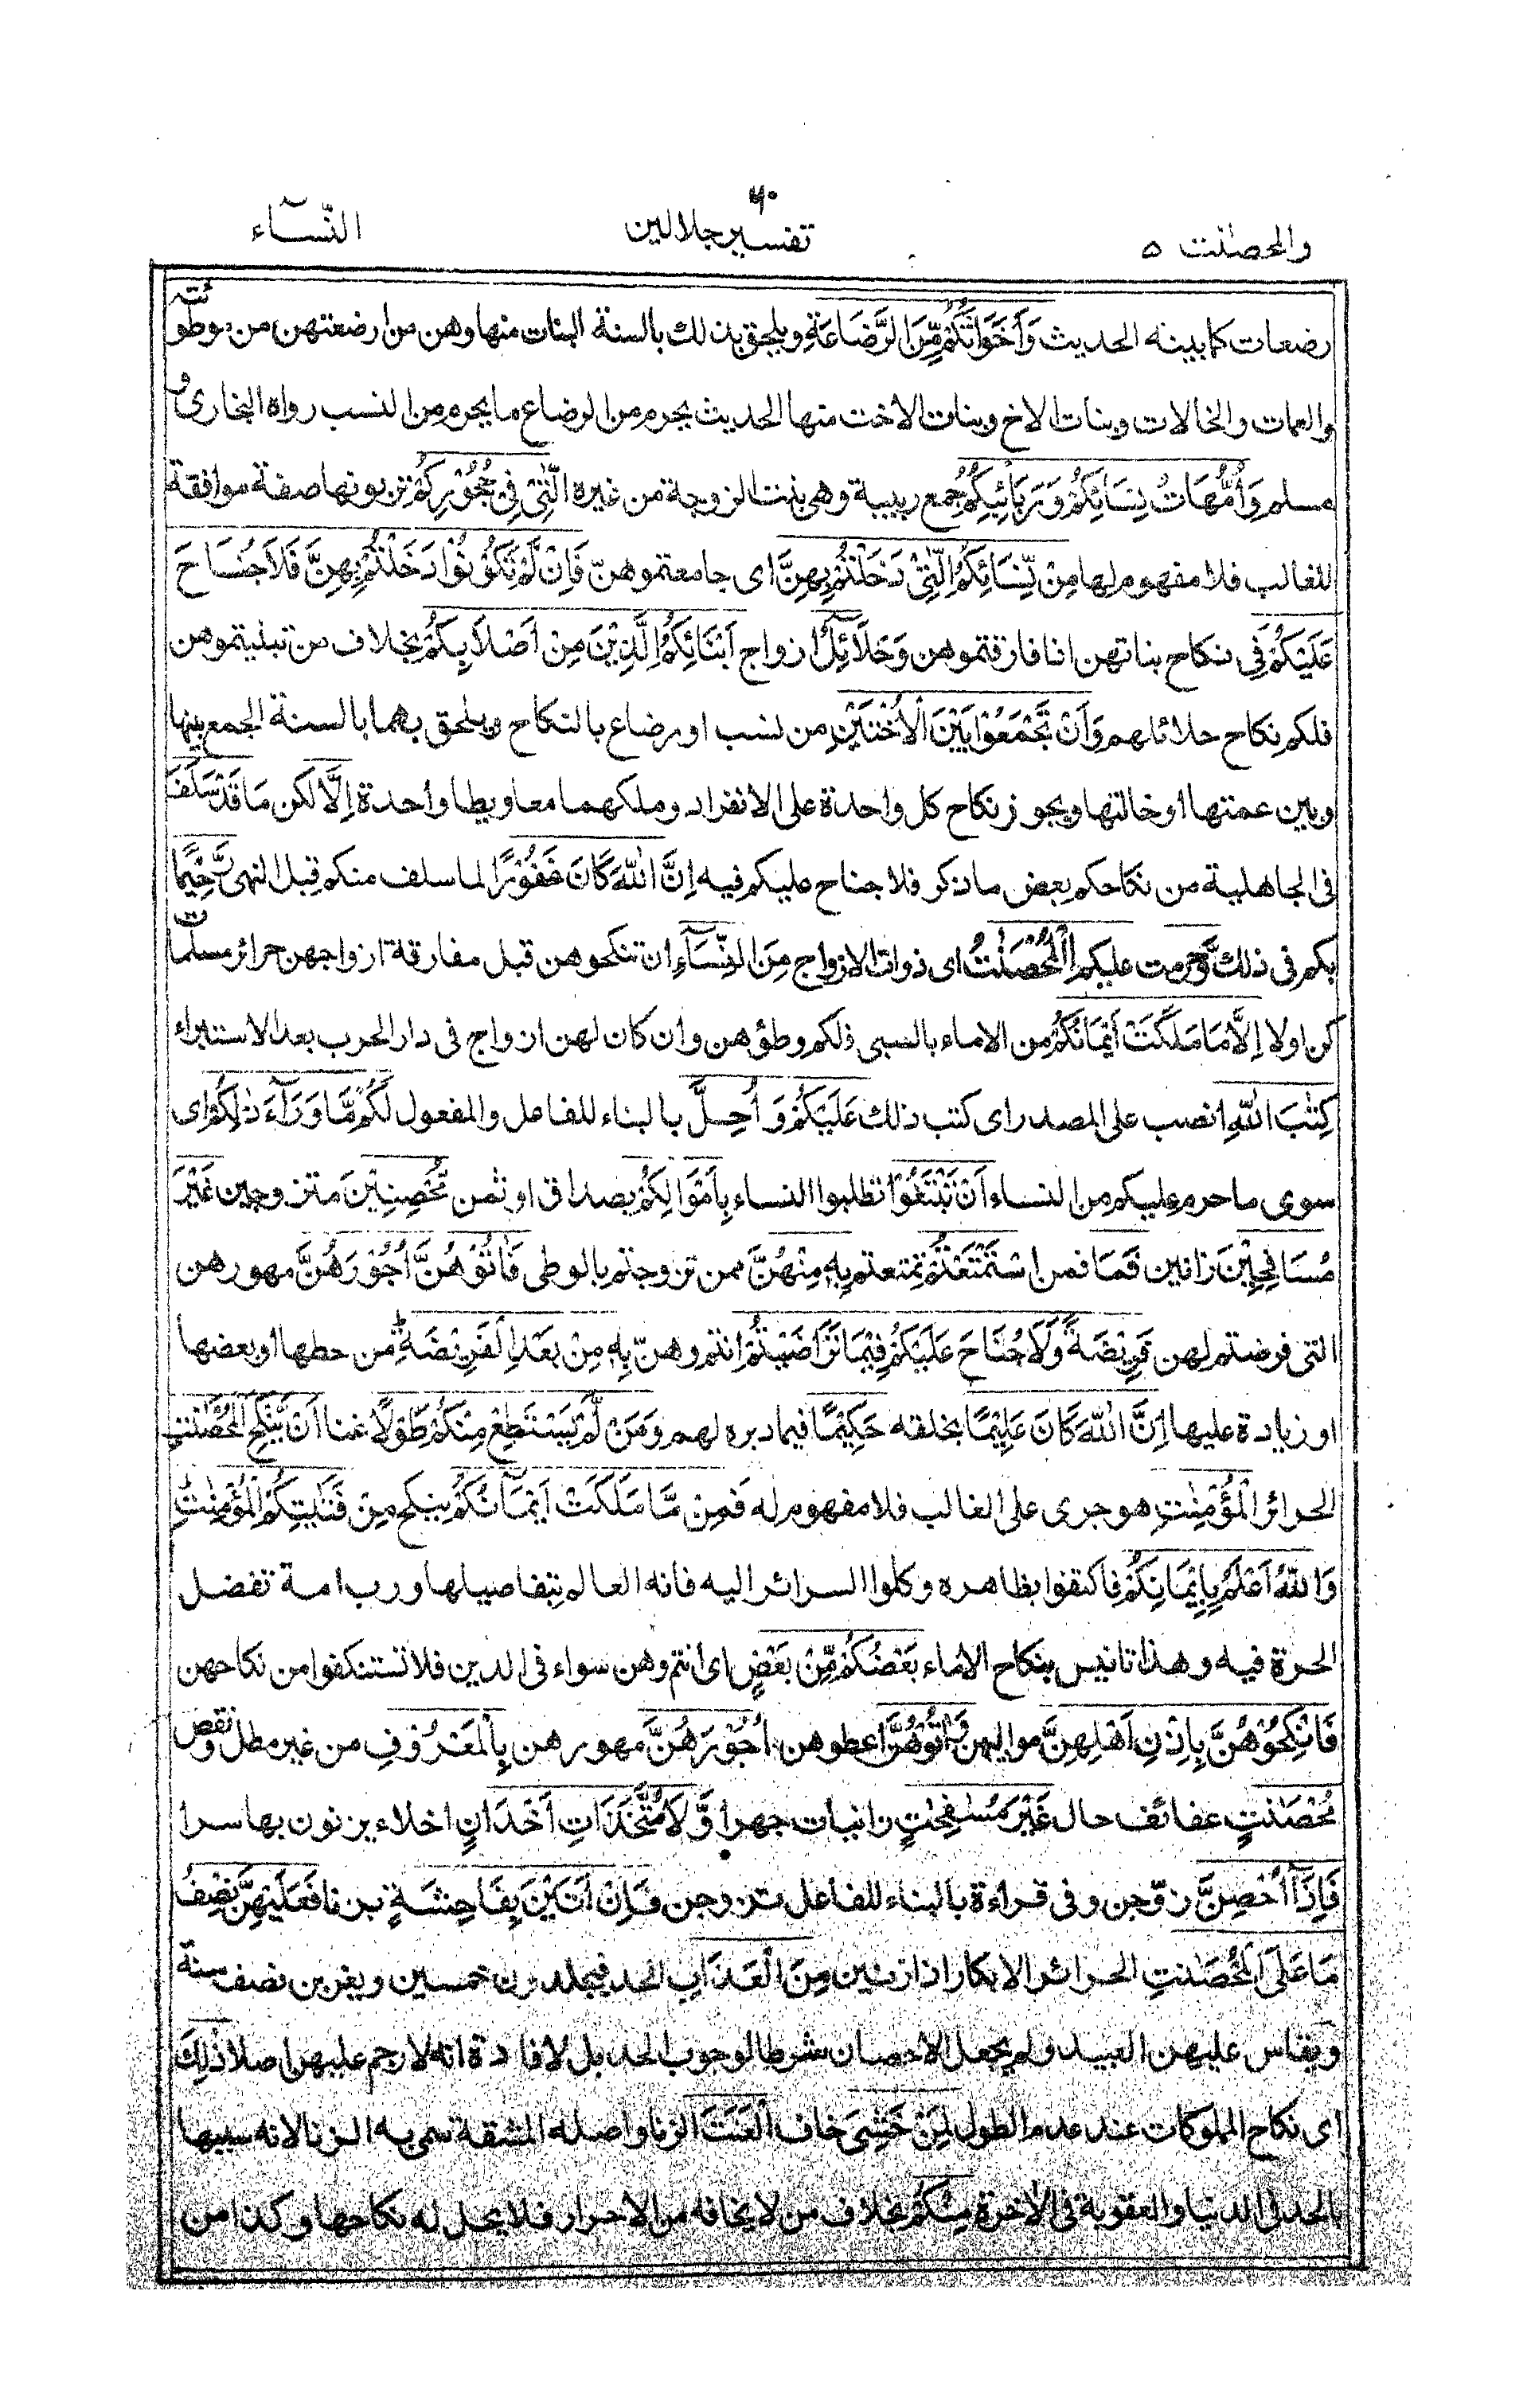 ٧٠
والمحصنت ٥ تفسير جلالين النّسآء
رضعات كما بينه الحديث وَأَخَوَاتُكُمْ مِّنَ الرَّضَاعَةِ ويلحق بذلك بالسنة البنات منها وهن من ارضعتهن من موطوئته
والعمات والخالات وبنات الاخ وبنات الاخت منها الحديث يحرم من الرضاع ما يحرم من النسب رواه البخارى و
مسلم وَأُمَّهَاتُ نِسَائِكُمْ وَرَبَائِبُكُمُ جمع ربيبة وهى بنت الزوجة من غيره الّٰتِىْ فِىْ حُجُوْرِكُمْ تربونها صفة موافقة
للغالب فلا مفهوم لها مِنْ نِّسَائِكُمُ الّٰتِىْ دَخَلْتُمْ بِهِنَّ اى جامعتموهنّ فَاِنْ لَّمْ تَكُوْنُوْا دَخَلْتُمْ بِهِنَّ فَلَا جُنَاحَ
عَلَيْكُمْ فى نكاح بناتهن اذا فارقتموهن وَحَلَآئِلُ ازواج اَبْنَائِكُمُ الَّذِيْنَ مِنْ اَصْلَابِكُمْ بخلاف من تبنيتموهن
فلكم نكاح حلائلهم وَاَنْ تَجْمَعُوْا بَيْنَ الْاُخْتَيْنِ من نسب او رضاع بالنكاح ويلحق بهما بالسنة الجمع بينها
وبين عمتها او خالتها ويجوز نكاح كل واحدة على الانفراد وملكهما معا ويطا واحدة اِلَّا لكن مَا قَدْ سَلَفَ
فى الجاهلية من نكاحكم بعض ما ذكر فلا جناح عليكم فيه اِنَّ اللّٰهَ كَانَ غَفُوْرًا لما سلف منكم قبل النهى رَّحِيْمًا
بكم فى ذلك وَّحرمت عليكم الْمُحْصَنٰتُ اى ذوات الازواج مِنَ النِّسَآءِ ان تنكحوهن قبل مفارقة ازواجهن حرائر مسلمات
كن اولا اِلَّا مَا مَلَكَتْ اَيْمَانُكُمْ من الاماء بالسبى فلكم وطؤهن وان كان لهن ازواج فى دار الحرب بعد الاستبراء
كِتٰبَ اللّٰهِ نصب على المصدر اى كتب ذلك عَلَيْكُمْ وَاُحِلَّ بالبناء للفاعل والمفعول لَكُمْ مَّا وَرَآءَ ذٰلِكُمْ اى
سوى ما حرم عليكم من النساء اَنْ تَبْتَغُوْا تطلبوا النساء بِاَمْوَالِكُمْ بصداق او ثمن مُّحْصِنِيْنَ متزوجين غَيْرَ
مُسَافِحِيْنَ زانين فَمَا فمن اسْتَمْتَعْتُمْ تمتعتم بِهٖ مِنْهُنَّ ممن تزوجتم بالوطى فَاٰتُوْهُنَّ اُجُوْرَهُنَّ مهورهن
التى فرضتم لهن فَرِيْضَةً وَلَا جُنَاحَ عَلَيْكُمْ فِيْمَا تَرَاضَيْتُمْ انتم وهنّ بِهٖ مِنْ بَعْدِ الْفَرِيْضَةِ من حطها او بعضها
او زيادة عليها اِنَّ اللّٰهَ كَانَ عَلِيْمًا بخلقه حَكِيْمًا فيما دبره لهم وَمَنْ لَّمْ يَسْتَطِعْ مِنْكُمْ طَوْلًا غنا اَنْ يَّنْكِحَ الْمُحْصَنٰتِ
الحرائر الْمُؤْمِنٰتِ هو جرى على الغالب فلا مفهوم له فَمِنْ مَّا مَلَكَتْ اَيْمَانُكُمْ ينكح مِنْ فَتَيٰتِكُمُ الْمُؤْمِنٰتِ
وَاللّٰهُ اَعْلَمُ بِاِيْمَانِكُمْ فاكتفوا بظاهره وكلوا السرائر اليه فانه العالم بتفاصيلها ورب امة تفضل
الحرة فيه وهذا تانيس بنكاح الاماء بَعْضُكُمْ مِّنْ بَعْضٍ اى انتم وهن سواء فى الدين فلا تستنكفوا من نكاحهن
فَانْكِحُوْهُنَّ بِاِذْنِ اَهْلِهِنَّ مواليهن وَاٰتُوْهُنَّ اعطوهن اُجُوْرَهُنَّ مهورهن بِالْمَعْرُوْفِ من غير مطل ونقص
مُحْصَنٰتٍ عفائف حال غَيْرَ مُسٰفِحٰتٍ زانيات جهرا وَّلَا مُتَّخِذَاتِ اَخْدَانٍ اخلاء يزنون بها سرا
فَاِذَآ اُحْصِنَّ زوّجن وفى قراءة بالبناء للفاعل تزوجن فَاِنْ اَتَيْنَ بِفَاحِشَةٍ بزنا فَعَلَيْهِنَّ نِصْفُ
مَا عَلَى الْمُحْصَنٰتِ الحرائر الابكار اذا زنين مِنَ الْعَذَابِ الحد فيجلدون خمسين ويغربن نصف سنة
ويقاس عليهن العبيد ولم يجعل الاحصان شرطا لوجوب الحد بل لافادة انه لا رجم عليهن اصلا ذٰلِكَ
اى نكاح المملوكات عند عدم الطول لِمَنْ خَشِىَ خاف الْعَنَتَ الزنا واصله المشقة سمى به الزنا لانه سببها
بالحد فى الدنيا والعقوبة فى الاخرة مِنْكُمْ بخلاف من لا يخافه من الاحرار فلا يحل له نكاحها وكذا من